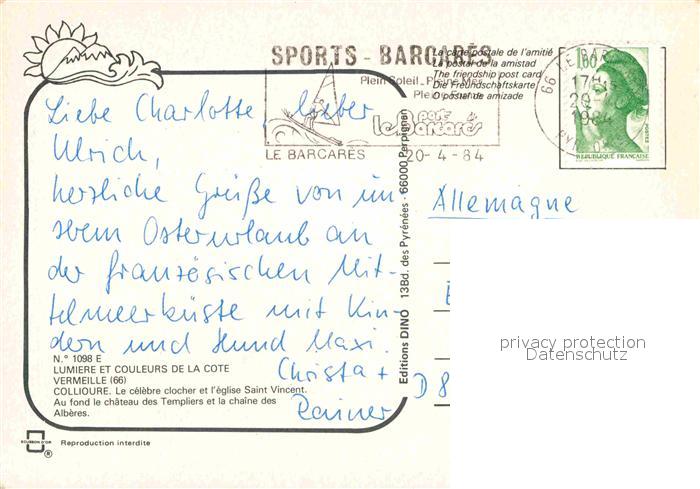 SPORTS - BARCARÈS
La carte postale de l'amitié
La postal de la amistad
The friendship post card
Die Freundschaftskarte
O postal de amizade
Plein Soleil - Pleine Mer
Pleine Forme
port
le Barcarès
LE BARCARÈS
20-4-84
66 LE BARCARÈS
17H
20-
1984
1,60
POSTES
RÉPUBLIQUE FRANÇAISE
Liebe Charlotte, lieber
Ulrich,
herzliche Grüße von un
serem Osterurlaub an
der französischen Mit-
telmeerküste mit Kin-
dern und Hund Maxi.
Christa +
Rainer
Allemagne
D 8
Editions DINO 13Bd. des Pyrénées - 66000 Perpignan
N.° 1098 E
LUMIERE ET COULEURS DE LA COTE
VERMEILLE (66)
COLLIOURE. Le célèbre clocher et l'église Saint Vincent.
Au fond le château des Templiers et la chaîne des
Albères.
ECUSSON D'OR
®
Reproduction interdite
privacy protection
Datenschutz